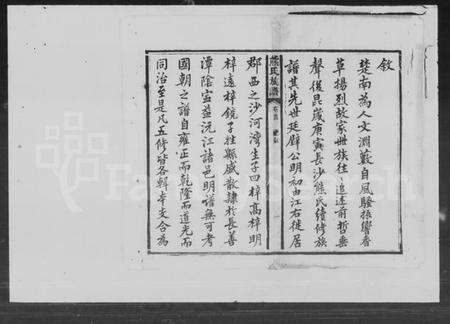 敘
楚南為人文淵藪自風騷振響香
草揚烈故家世族往往追述前哲垂
聲後昆歲庚寅長沙熊氏續修族
譜其先世廷辟公明初由江右徙居
熊氏族譜
郡西之沙河灣生子四梓高梓明
梓遠梓鏡子姓縣盛散隸於長善
潭陰宙益沅江諸邑明譜無可考
國朝之譜自雍正而乾隆而道光而
同治至是凡五修皆各輯本支合為